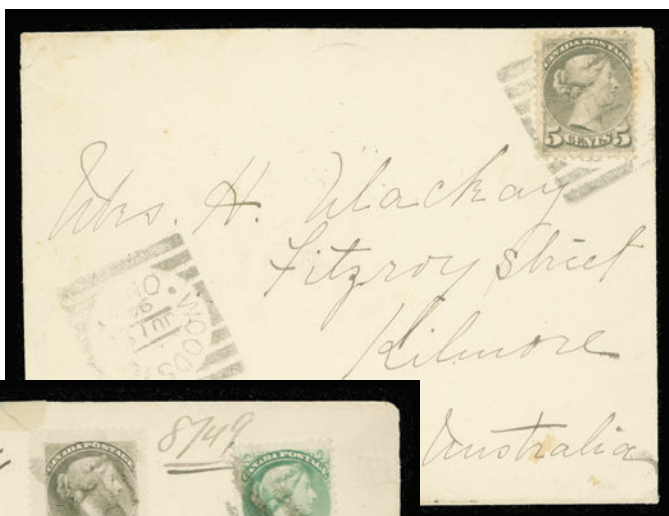 CANADA POSTAGE
5 CENTS 5
Mrs. H. Mackay
Fitzroy Street
Kilmore
Australia
CANADA POSTAGE
8749
CANADA POSTAGE